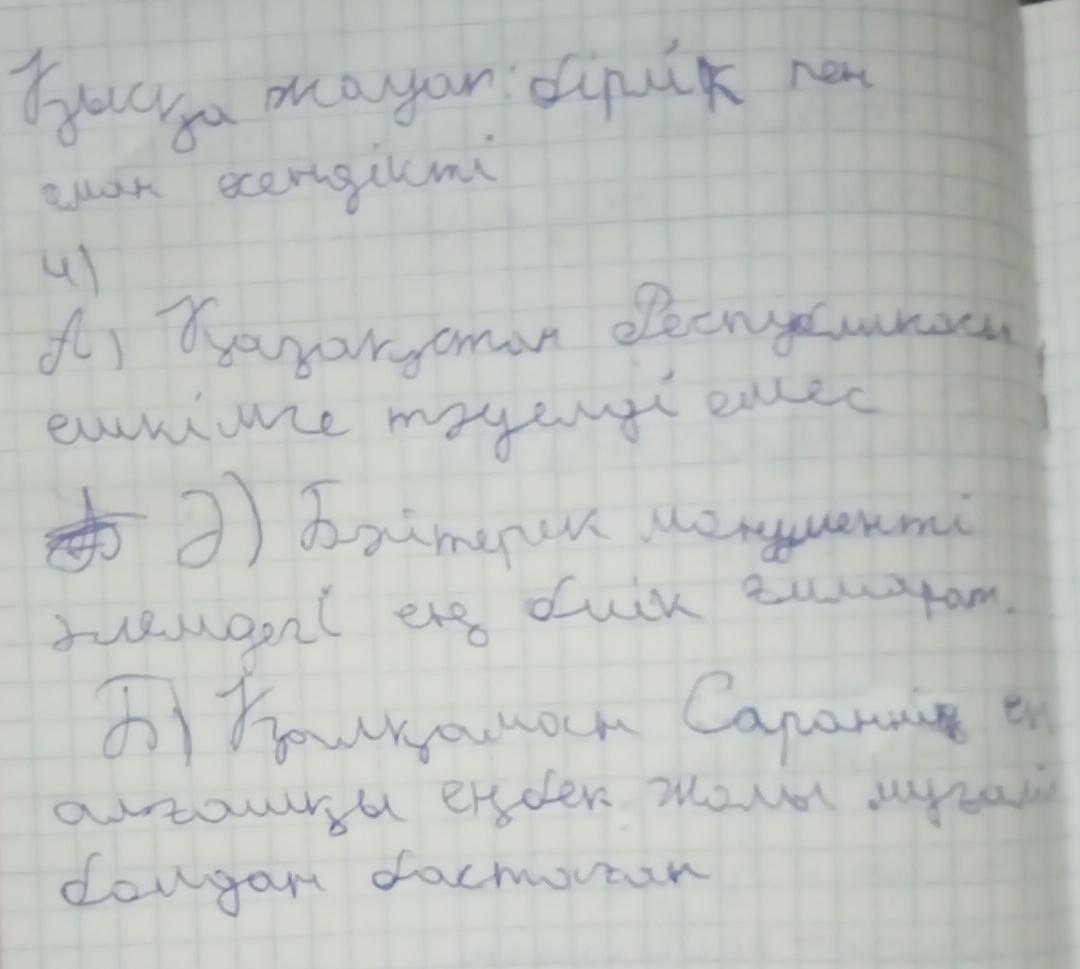 Қысқа жауап: бірлік пен
аман есендікті
4)
А) Қазақстан Республикасы
ешкімге тәуелді емес
Ә) Бәйтерек монументі
әлемдегі ең биік ғимарат.
Б) Қалқаман Сараннің ең
алғашқы еңбек жолы мұғалім
болдан бастаған